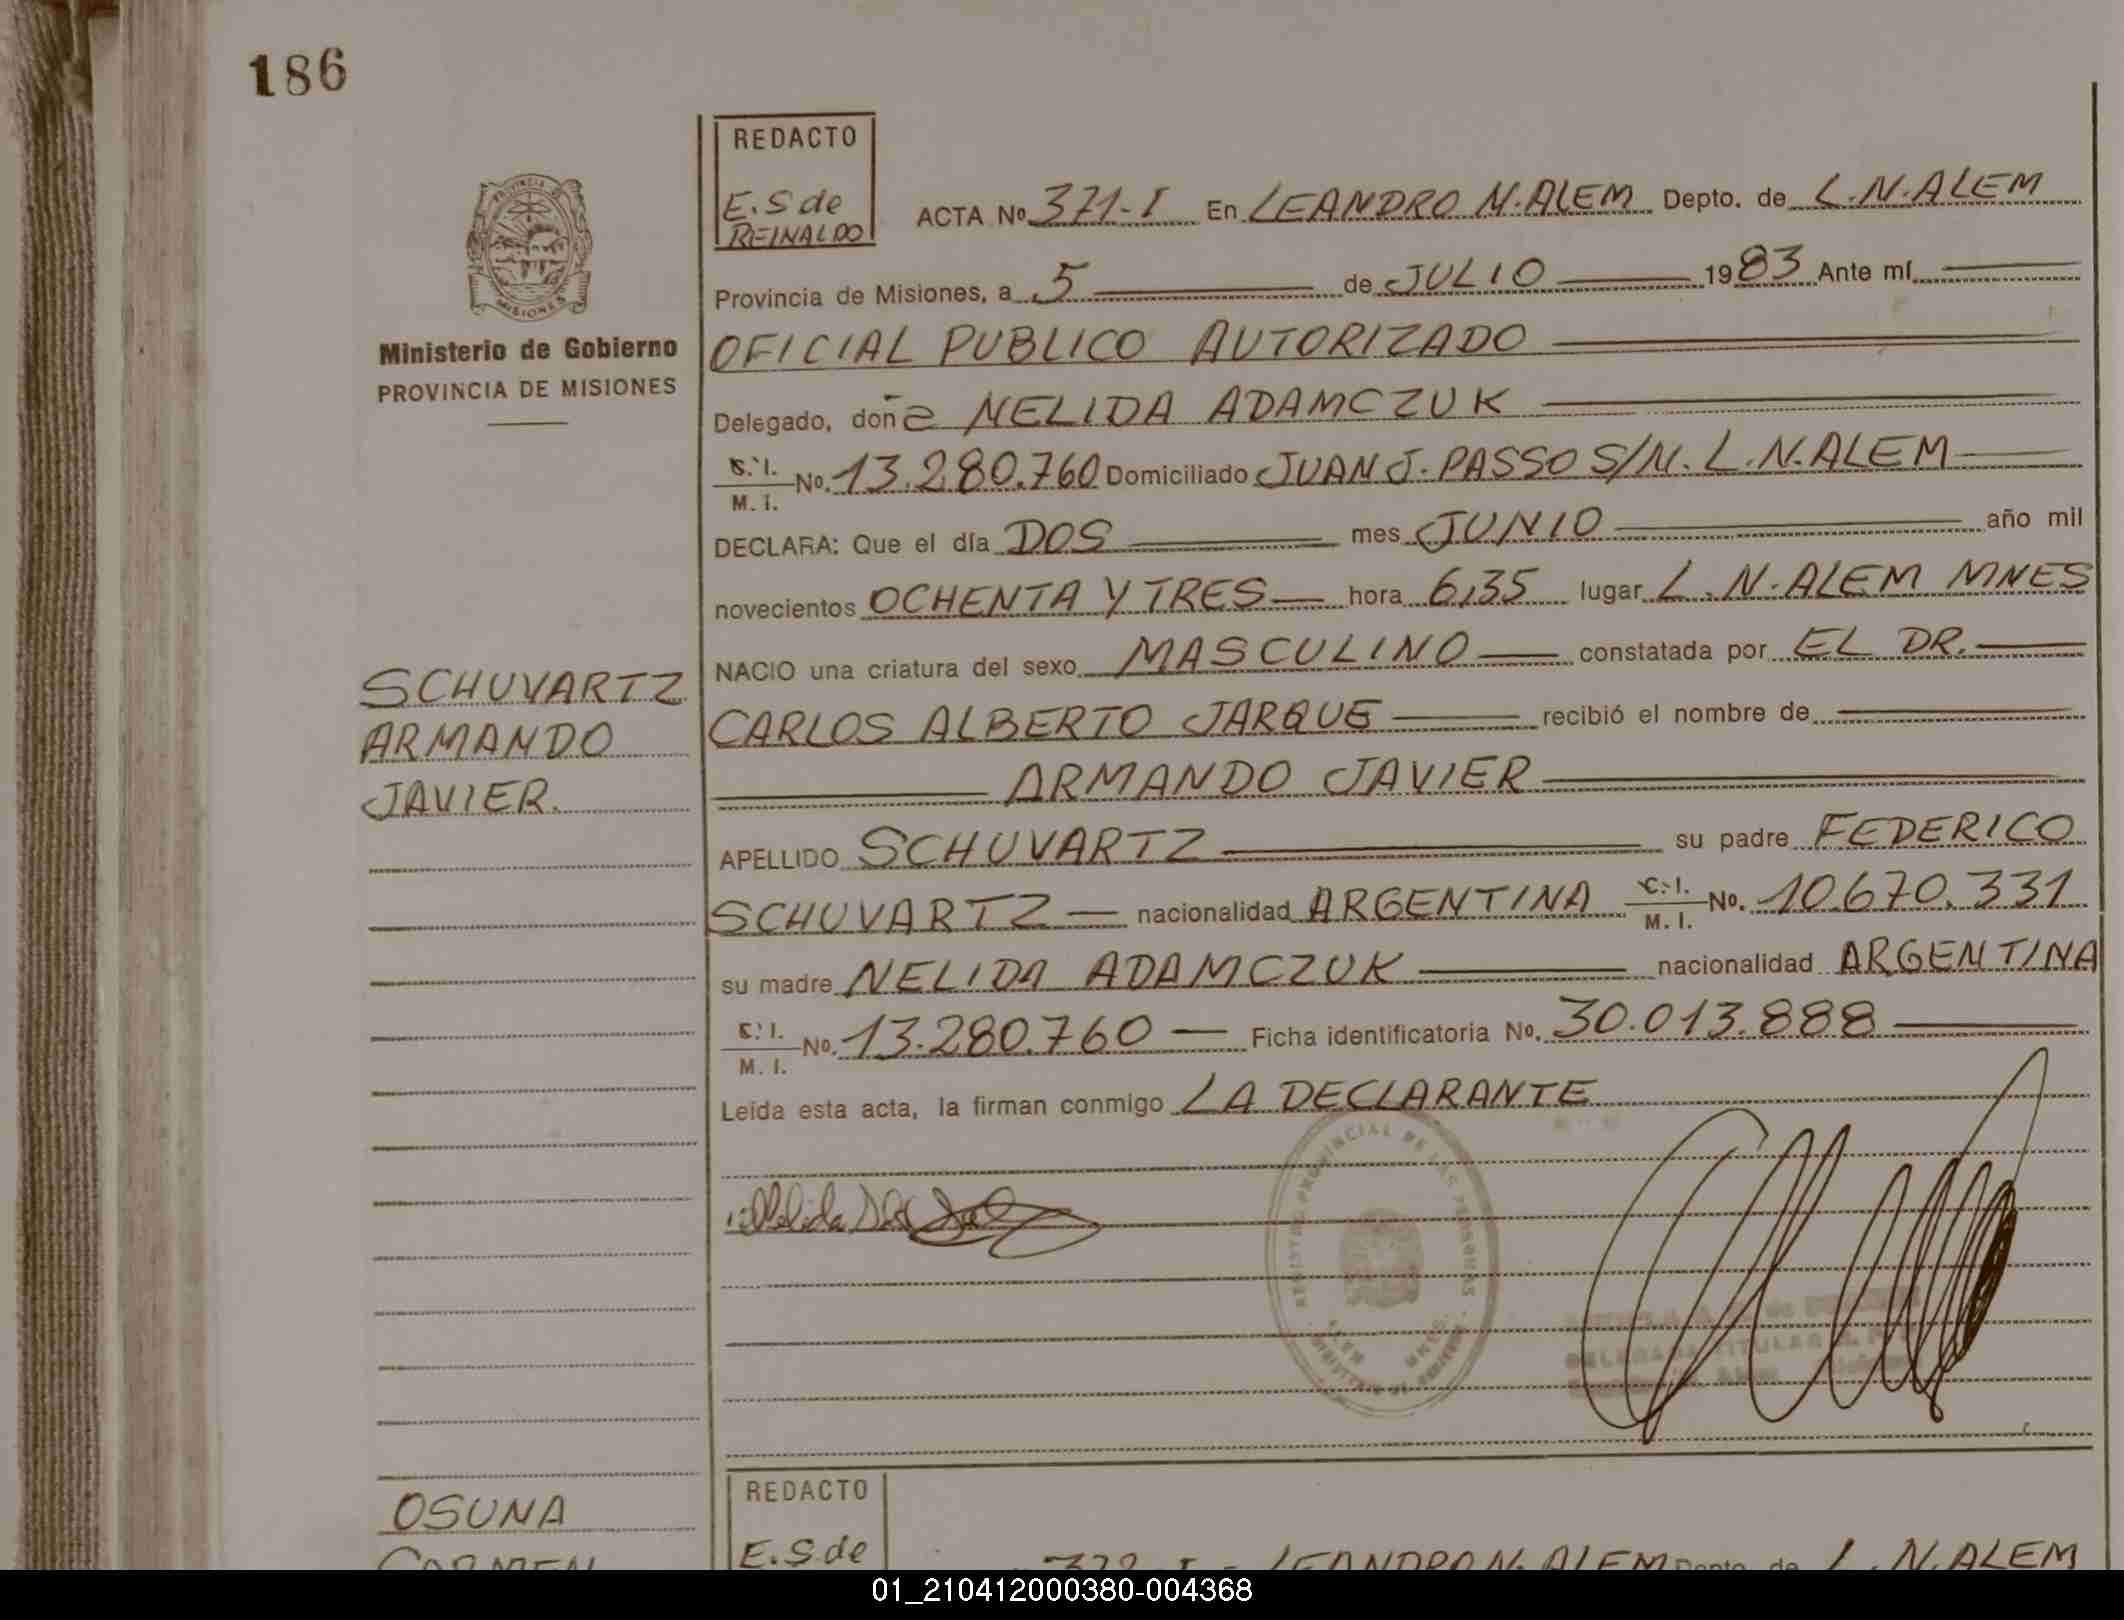 186
REDACTO
E.S de
REINALDO
PROVINCIA DE
MISIONES
Ministerio de Gobierno
PROVINCIA DE MISIONES
ACTA Nº 371-I En LEANDRO N. ALEM Depto. de L.N.ALEM
Provincia de Misiones, a 5 de JULIO 1983 Ante mí
OFICIAL PUBLICO AUTORIZADO
Delegado, doña NELIDA ADAMCZUK
C. I.
M. I. No. 13.280.760 Domiciliado JUAN J. PASSO S/N. L.N.ALEM
DECLARA: Que el día DOS mes JUNIO año mil
novecientos OCHENTA Y TRES hora 6,35 lugar L.N.ALEM MNES
NACIO una criatura del sexo MASCULINO constatada por EL DR.
CARLOS ALBERTO JARQUE recibió el nombre de
ARMANDO JAVIER
APELLIDO SCHUVARTZ su padre FEDERICO
SCHUVARTZ nacionalidad ARGENTINA C. I.
M. I. No. 10.670.331
su madre NELIDA ADAMCZUK nacionalidad ARGENTINA
C. I.
M. I. No. 13.280.760 Ficha identificatoria No. 30.013.888
Leída esta acta, la firman conmigo LA DECLARANTE
SCHUVARTZ
ARMANDO
JAVIER.
REGISTRO PROVINCIAL DE LAS PERSONAS
ALEM MNES.
DELEGADA TITULAR
OSUNA
CARMEN
REDACTO
E.S de
372-I LEANDRO N. ALEM Depto. de L.N.ALEM
01_210412000380-004368